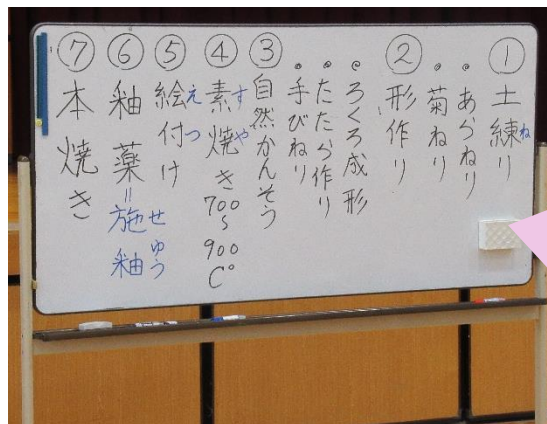 ①土練り
・あらねり
・菊ねり
②形作り
・ろくろ成形
・たたら作り
・手びねり
③自然かんそう
④素焼き700〜900C°
すや
⑤絵付け
えつ
⑥釉薬=施釉
せゆう
⑦本焼き
ね